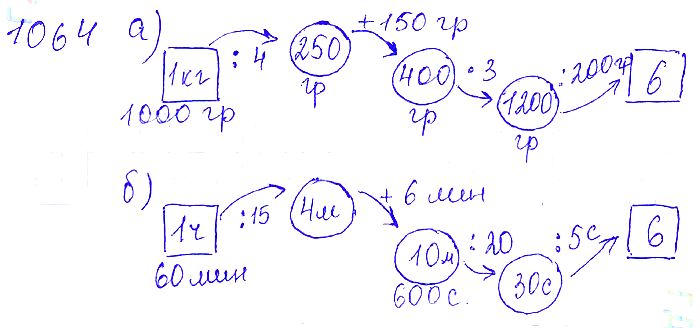 1064 а) 1кг : 4 250 гр + 150 гр 400 гр · 3 1200 гр : 200гр 6
1000 гр
б) 1ч : 15 4м + 6 мин 10м : 20 30с : 5с 6
60 мин 600 с.